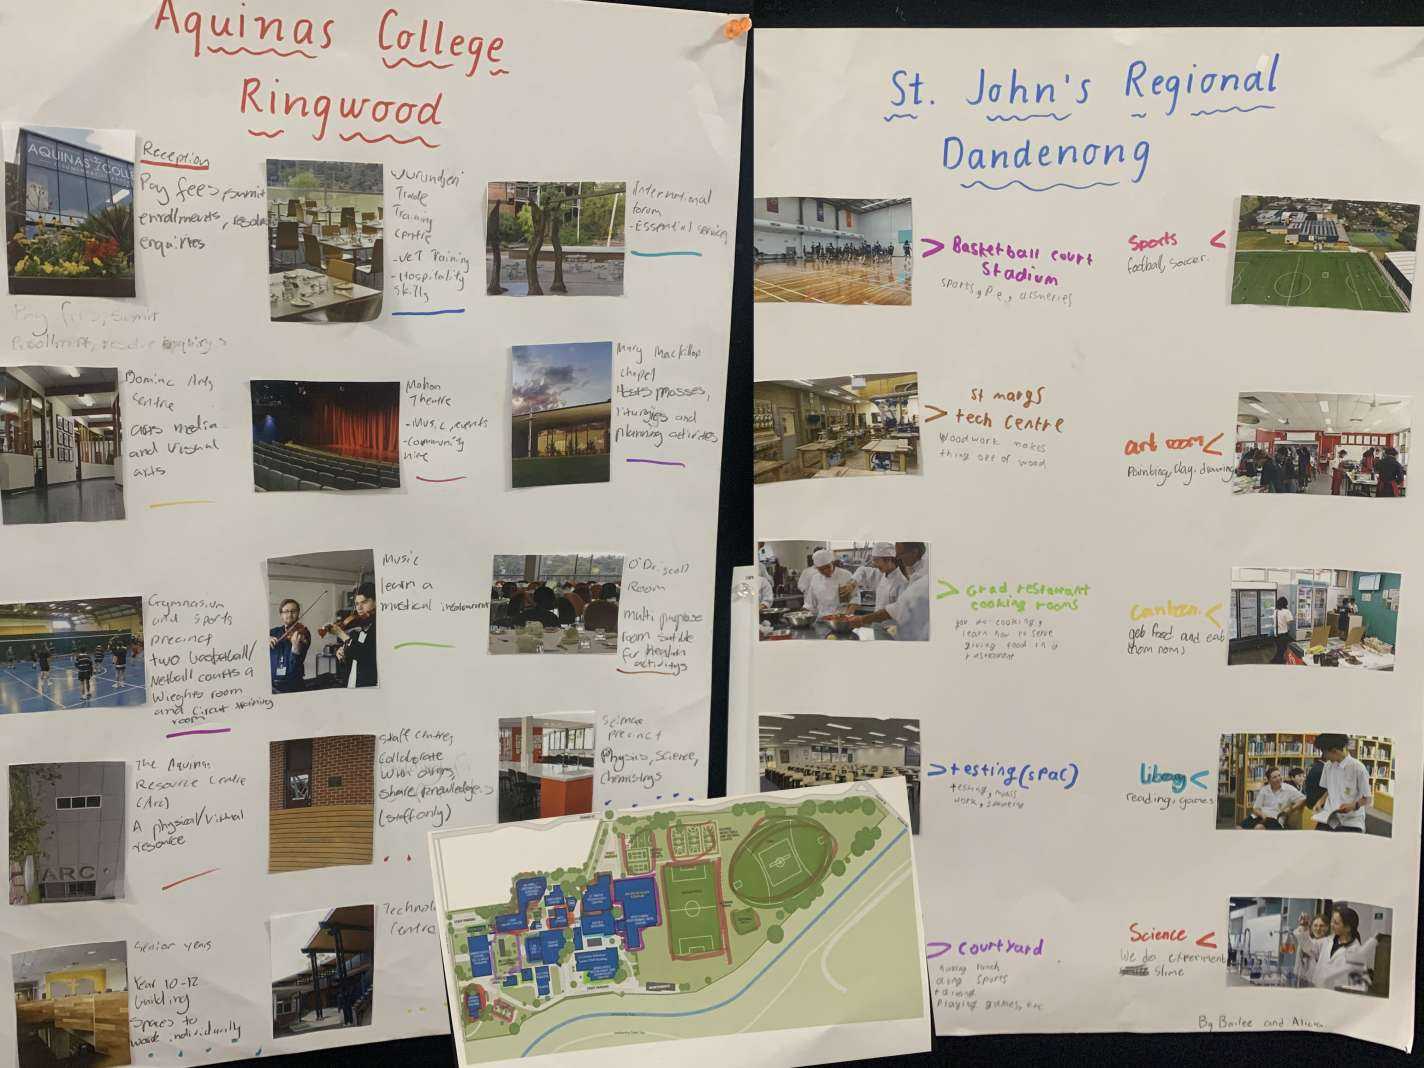 Aquinas College
Ringwood
AQUINAS COLLE
Reception
Pay fees, sumit
enrollments, resolve
enquires
Pay fees, sumit
Enrollment, resolve
Wurundjeri
Trade
Training
centre
-VET Training
-Hospitality
skills
International
forum
-Essential services
Dominc Arts
Centre
arts media
and Visual
arts
Mahon
Theatre
-Music, events
-community
Mary Mackillop
chapel
masses,
liturgies and
planning activities
Gymnasium
and sports
precinct
two basketball/
Netball courts a
Wieghts room
and circut training
room
Music
learn a
musical instrument
O'Driscoll
Room
multi purpose
room suitable
for Health
activitys
The Aquinas
Resource Centre
(Arc)
A physical/virtual
resource
ARC
Staff Centre,
Collabrate
With others,
share knowledge.
(staff only)
Science
precinct
Physics, Science,
Chemistrys
Senior years
Year 10-12
building
Spaces to
work individually
Technol
Centre
St. John's Regional
Dandenong
> Basketball court
Stadium
sports, P.e, assemblies
Sports <
football, soccer.
> St margs
tech centre
Woodwork makes
thing out of wood
art room <
Painting, clay, drawing
> Grad restaurant
cooking rooms
you do cooking,
learn how to serve
giving food in a
restaurant
Canteen <
get food and eat
> testing (spac)
testing, mass
work,
library <
reading, games
> courtyard
having lunch
doing sports
Playing games, etc
Science <
We do experiment
Slime
By Bailee and Alicia